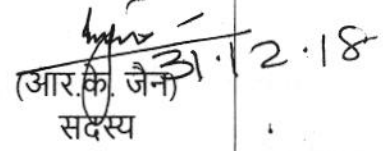 31.12.18
(आर.के. जैन)
सदस्य